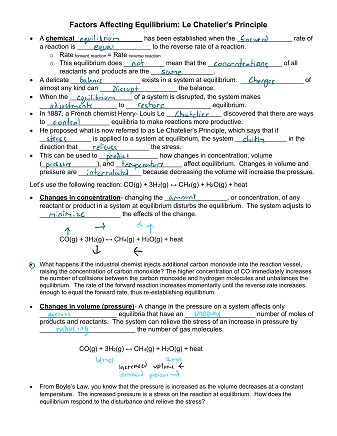 Factors Affecting Equilibrium: Le Chatelier's Principle
• A chemical equilibrium has been established when the forward rate of
a reaction is equal to the reverse rate of a reaction.
o Rate forward reaction = Rate reverse reaction
o This equilibrium does not mean that the concentrations of all
reactants and products are the same.
• A delicate balance exists in a system at equilibrium. Changes of
almost any kind can disrupt the balance.
• When the equilibrium of a system is disrupted, the system makes
adjustments to restore equilibrium.
• In 1887, a French chemist Henry- Louis Le Chatelier discovered that there are ways
to control equilibria to make reactions more productive.
• He proposed what is now referred to as Le Chatelier's Principle, which says that if
stress is applied to a system at equilibrium, the system shifts in the
direction that relieves the stress.
• This can be used to predict how changes in concentration, volume
(pressure), and temperature affect equilibrium. Changes in volume and
pressure are interrelated because decreasing the volume will increase the pressure.
Let's use the following reaction: CO(g) + 3H₂(g) ↔ CH₄(g) + H₂O(g) + heat
• Changes in concentration- changing the amount, or concentration, of any
reactant or product in a system at equilibrium disturbs the equilibrium. The system adjusts to
minimize the effects of the change.
↑ → ↑
CO(g) + 3H₂(g) ↔ CH₄(g) + H₂O(g) + heat
↓ ←
What happens if the industrial chemist injects additional carbon monoxide into the reaction vessel,
raising the concentration of carbon monoxide? The higher concentration of CO immediately increases
the number of collisions between the carbon monoxide and hydrogen molecules and unbalances the
equilibrium. The rate of the forward reaction increases momentarily until the reverse rate increases
enough to equal the forward rate, thus re-establishing equilibrium.
• Changes in volume (pressure)- A change in the pressure on a system affects only
gaseous equilibria that have an unequal number of moles of
products and reactants. The system can relieve the stress of an increase in pressure by
reducing the number of gas molecules.
CO(g) + 3H₂(g) ↔ CH₄(g) + H₂O(g) + heat
4 mol 2 mol
increased volume ←
increased pressure →
• From Boyle's Law, you know that the pressure is increased as the volume decreases at a constant
temperature. The increased pressure is a stress on the reaction at equilibrium. How does the
equilibrium respond to the disturbance and relieve the stress?